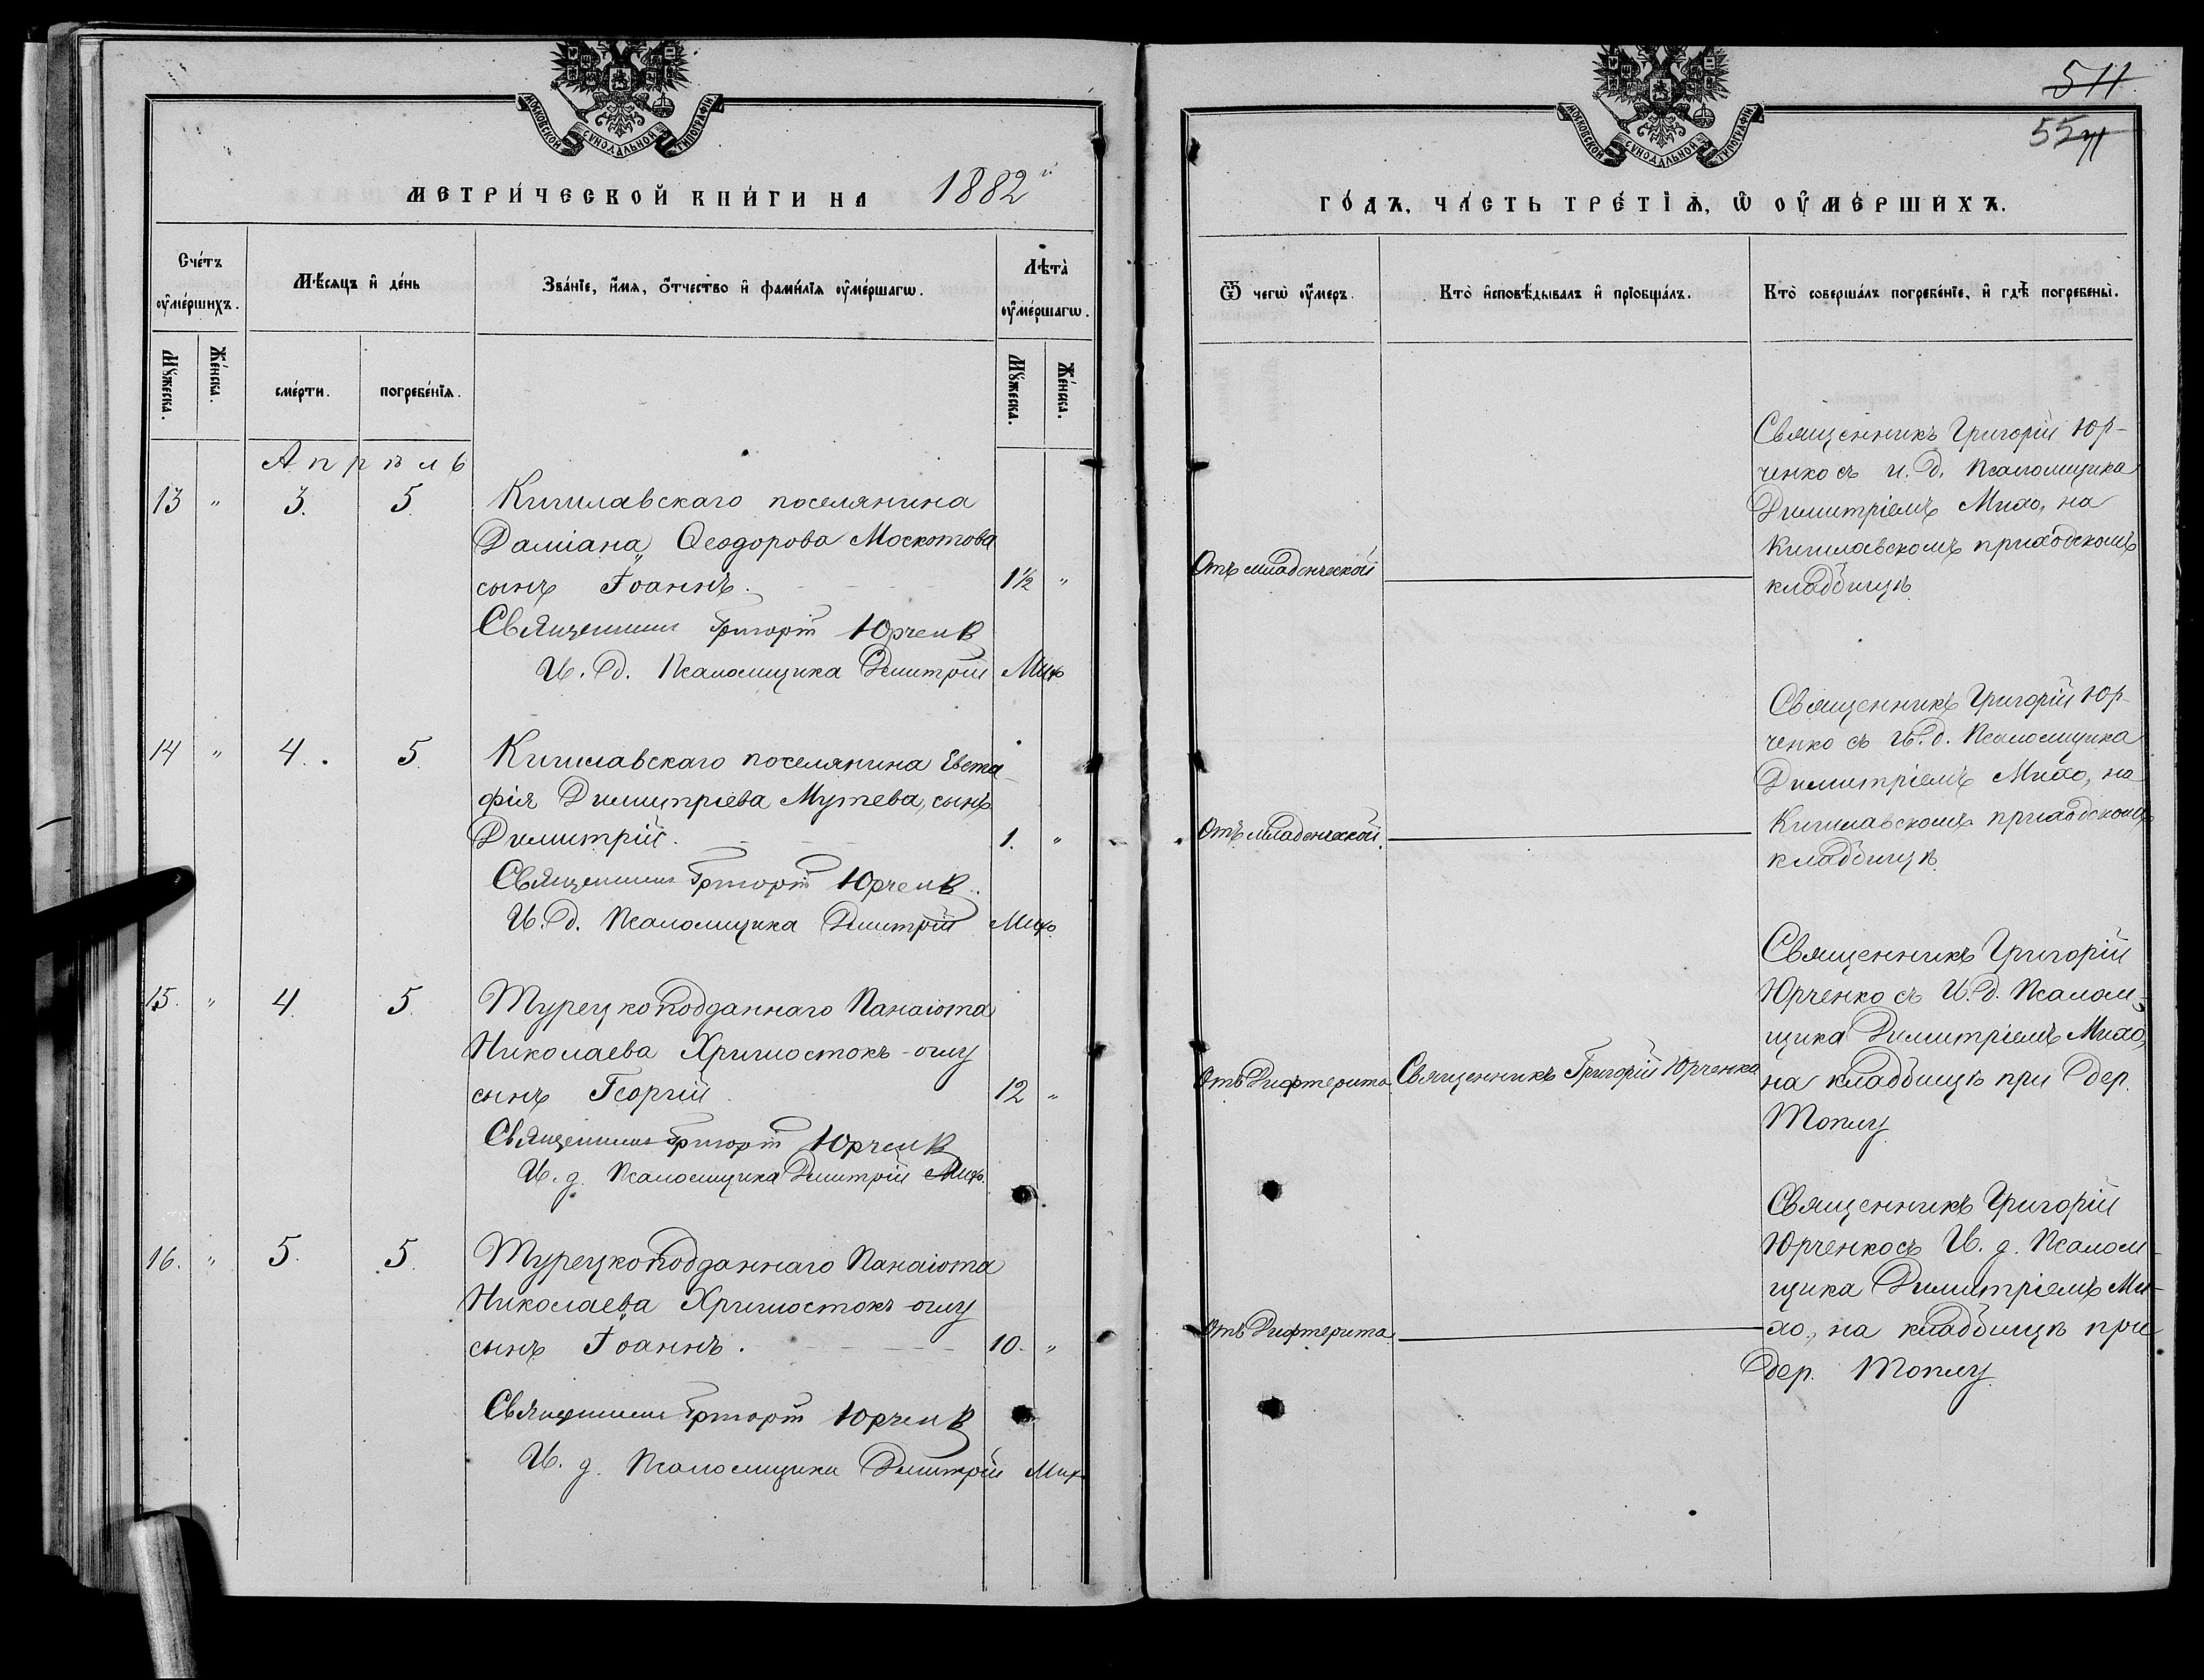 МОСКОВСКОЙ СѴНОДАЛЬНОЙ ТИПОГРАФІИ
МЕТРИ́ЧЕСКОЙ КНИ́ГИ НА 1882й
Сче́тъ ᲂу҆ме́ршихъ.
Мѣ́сяцъ и҆ де́нь
Зва́нїе, и҆́мя, ѻ҆́тчество и҆ фами́лїя ᲂу҆ме́ршагѡ.
Лѣта̀ ᲂу҆ме́ршагѡ.
Мꙋ́жеска.
Же́нска.
сме́рти.
погребе́нїѧ.
Мꙋ́жеска.
Же́нска.
Апрѣль
13 " 3. 5. Кишлавскаго поселянина
Даміана Ѳеодорова Москотова
сынъ Іоаннъ. 1½ "
Священникъ Григорій Юрченко
И. д. Псаломщика Димитрій Михо
14 " 4. 5. Кишлавскаго поселянина Евста-
фія Димитріева Мутева, сынъ
Димитрій. 1. "
Священникъ Григорій Юрченко.
И. д. Псаломщика Димитрій Михо.
15. " 4. 5. Турецкоподданнаго Панаіота
Николаева -оглу
сынъ Георгій 12 "
Священникъ Григорій Юрченко
И. д. Псаломщика Димитрій Михо.
16. " 5. 5. Турецкоподданнаго Панаіота
Николаева -оглу
сынъ Іоаннъ. 10. "
Священникъ Григорій Юрченко
И. д. Псаломщика Димитрій Михо
МОСКОВСКОЙ СѴНОДАЛЬНОЙ ТИПОГРАФІИ
511
55
ГО́ДЪ, ЧА́СТЬ ТРЕ́ТЇѦ, Ѡ҆ ОУ҆МЕ́РШИХЪ.
Ѿ чегѡ̀ ᲂу҆́меръ.
Кто̀ и҆сповѣ́дывалъ и҆ прїобща́лъ.
Кто̀ соверша́лъ погребе́нїе, и҆ гдѣ̀ погребены̀.
Священникъ Григорій Юр-
ченко съ и. д. Псаломщика
Димитріемъ Михо, на
Кишлавскомъ приходскомъ
кладбищѣ
Отъ младенческой
Священникъ Григорій Юр-
ченко съ И. д. Псаломщика
Димитріемъ Михо, на
Кишлавскомъ приходскомъ
кладбищѣ.
Отъ младенческой.
Священникъ Григорій
Юрченко съ И. д. Псалом-
щика Димитріемъ Михо,
на кладбищѣ при дер.
Топлу
Отъ Дифтерита Священникъ Григорій Юрченко
Священникъ Григорій
Юрченко съ И. д. Псалом-
щика Димитріемъ Ми-
хо, на кладбищѣ при
дер. Топлу.
Отъ Дифтерита